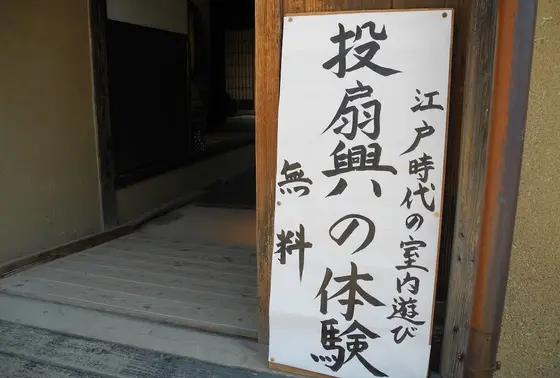 江戸時代の室内遊び
投扇興の体験
無料